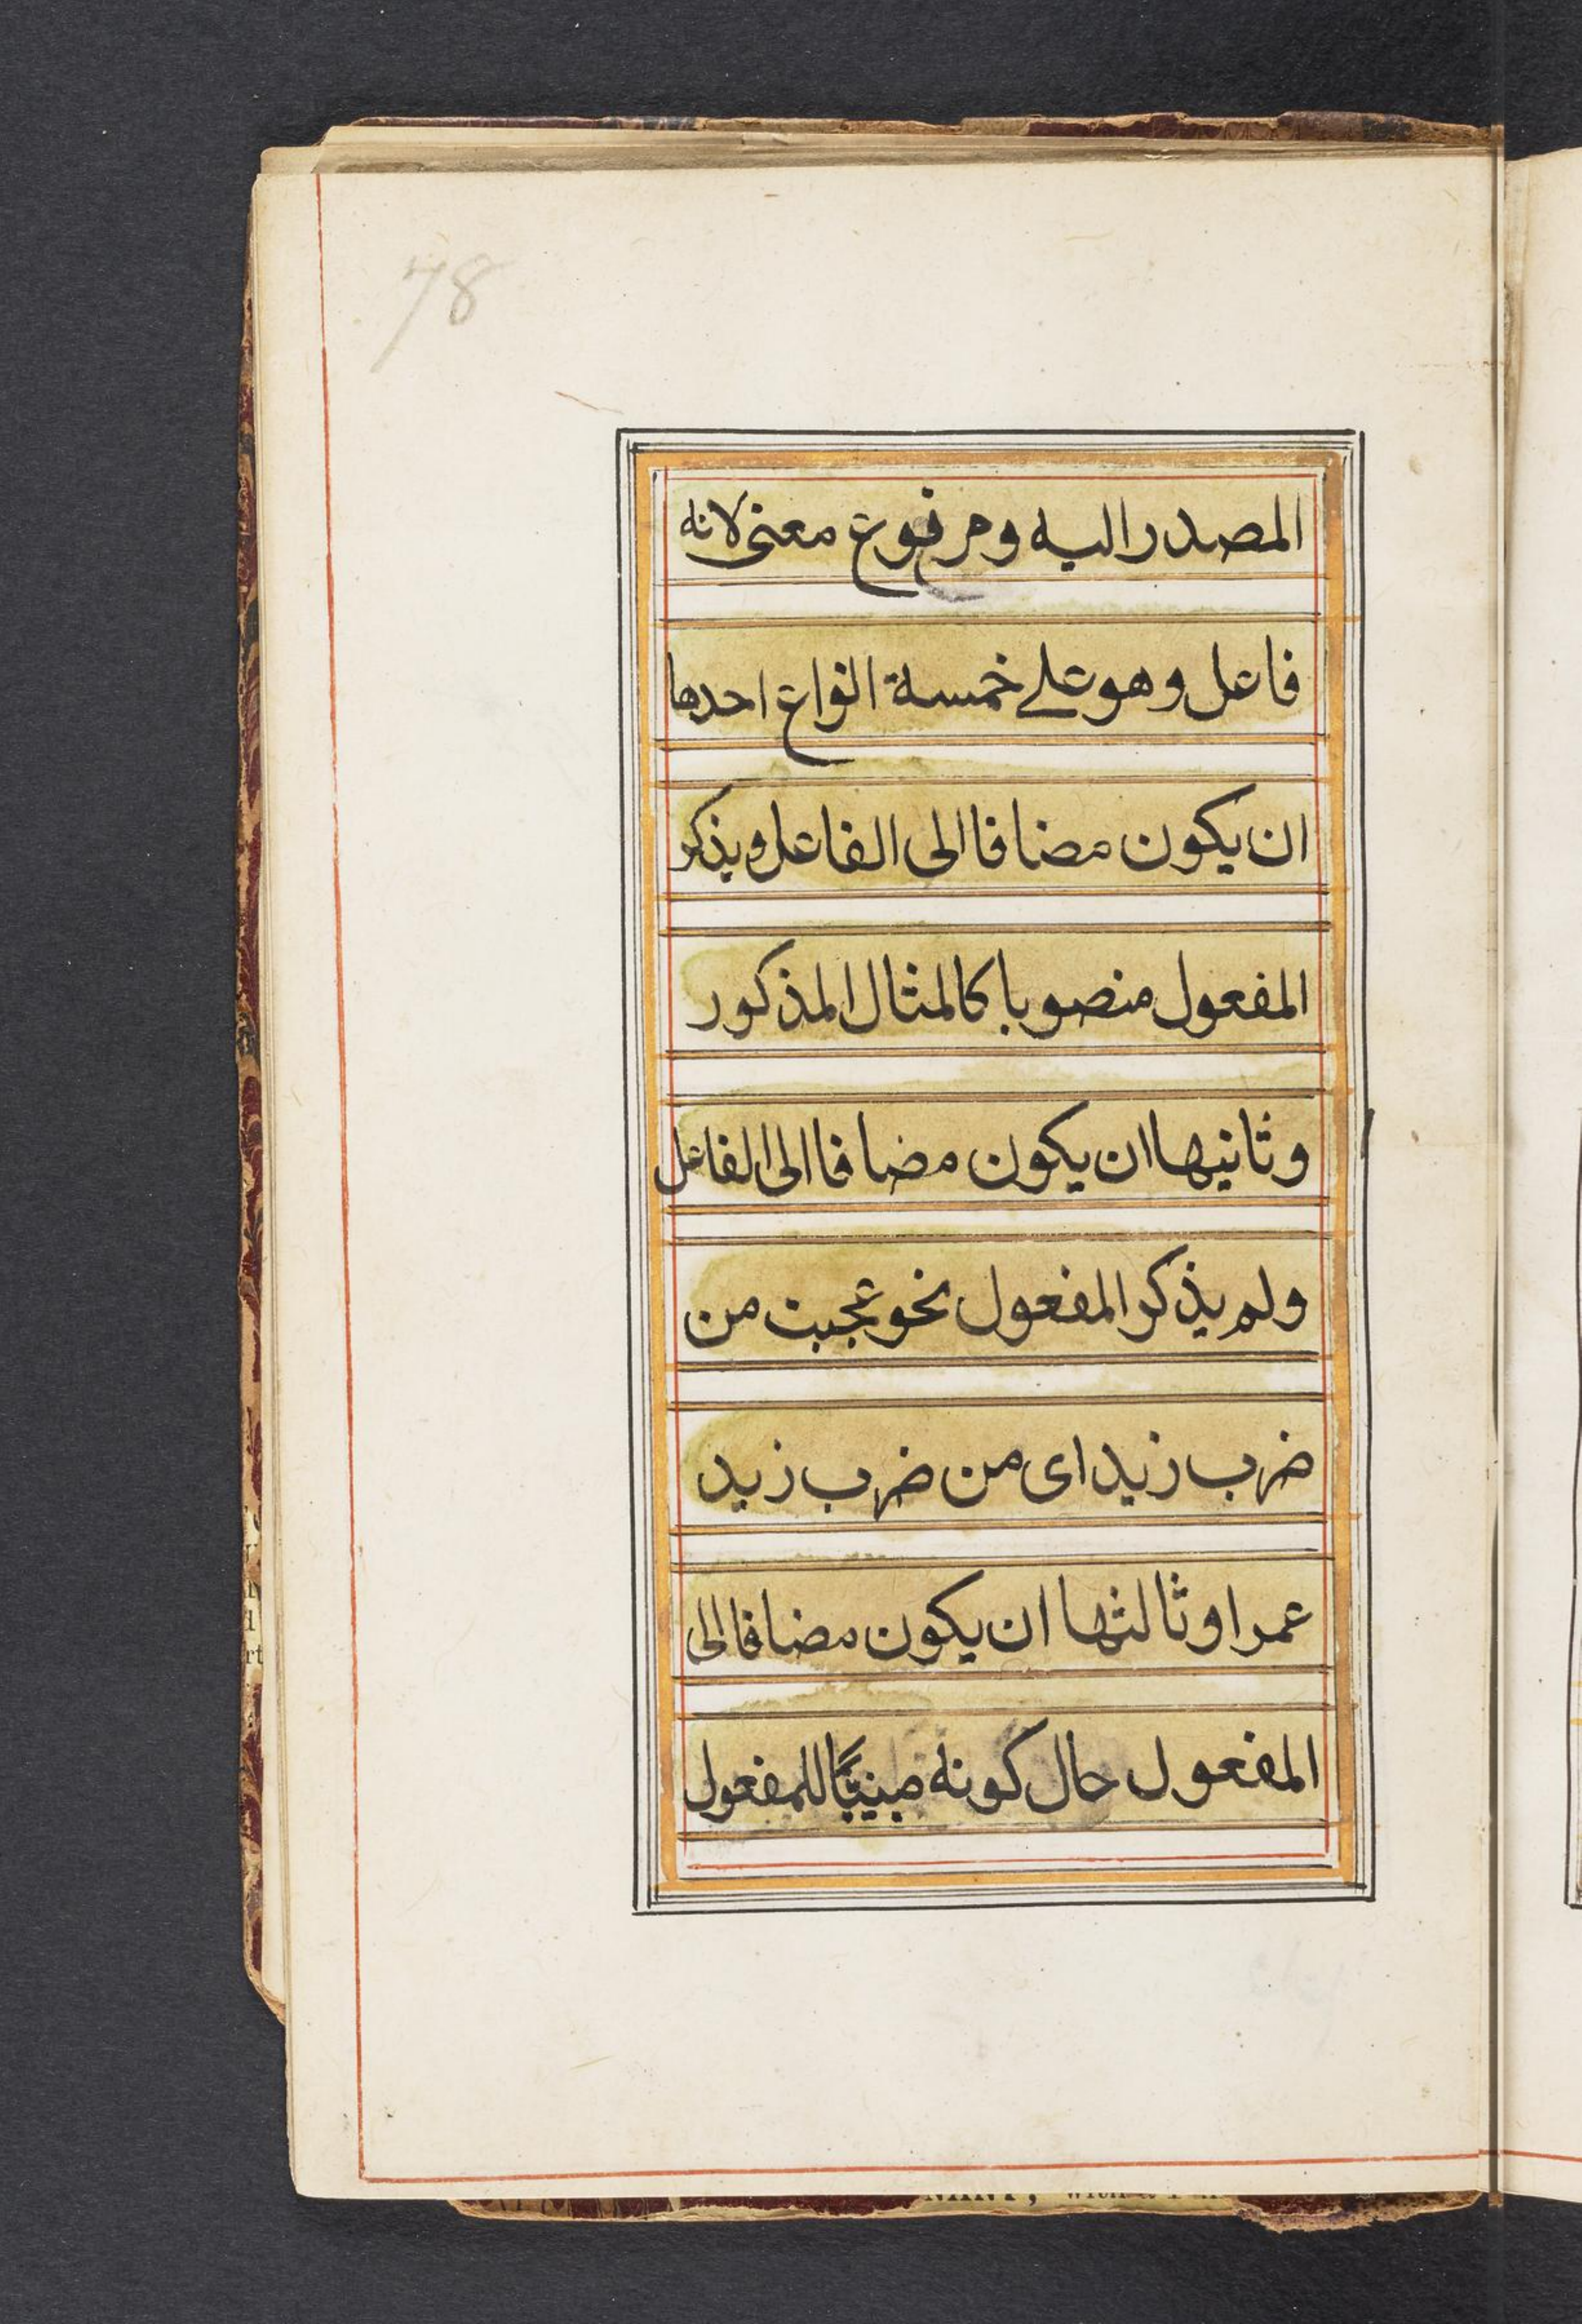 78
المصدر اليه ومرفوع معنى لانه
فاعل وهو على خمسة انواع احدها
ان يكون مضافا الى الفاعل ويذكر
المفعول منصوبا كالمثال المذكور
وثانيها ان يكون مضافا الى الفاعل
ولم يذكر المفعول نحو عجبت من
ضرب زيد اى من ضرب زيد
عمرا وثالثها ان يكون مضافا الى
المفعول حال كونه مبنيًا للمفعول